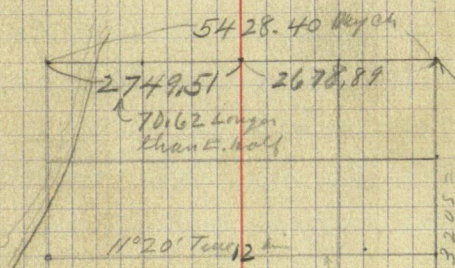 5428.40 By ch
2749.51 2678.89
70.62 Longer
than E. half
11°20' True
12
3205